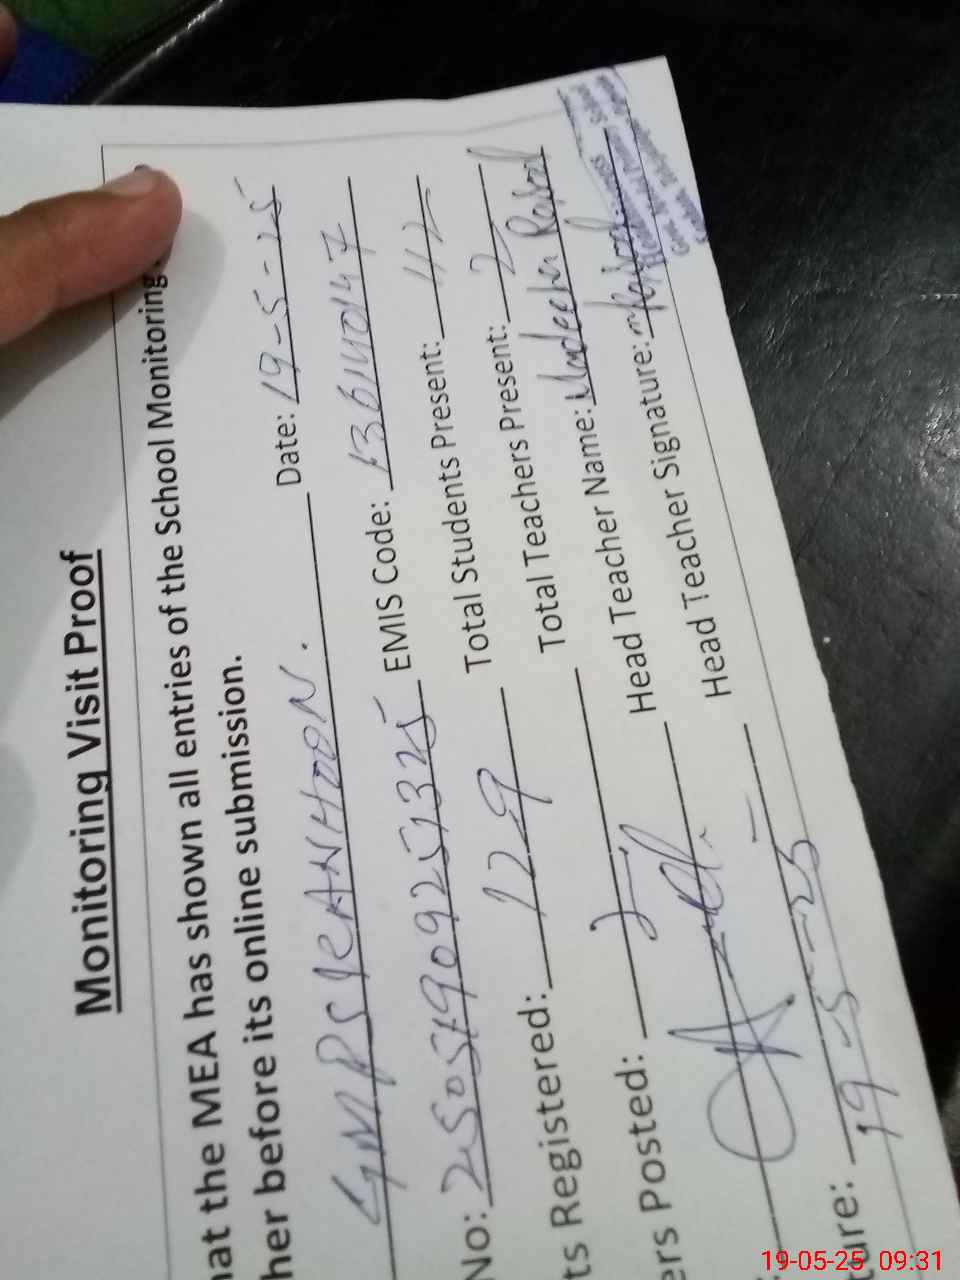 Monitoring Visit Proof
hat the MEA has shown all entries of the School Monitoring
her before its online submission.
GMPS KANHOON. Date: 19-5-25
EMIS Code: 36140147
No: 25051909251325 Total Students Present: 112
ts Registered: 129 Total Teachers Present: 2
ers Posted: 2 Head Teacher Name: Madeeha Rasool
Head Teacher Signature:
ture: 19-5-25
19-05-25 09:31